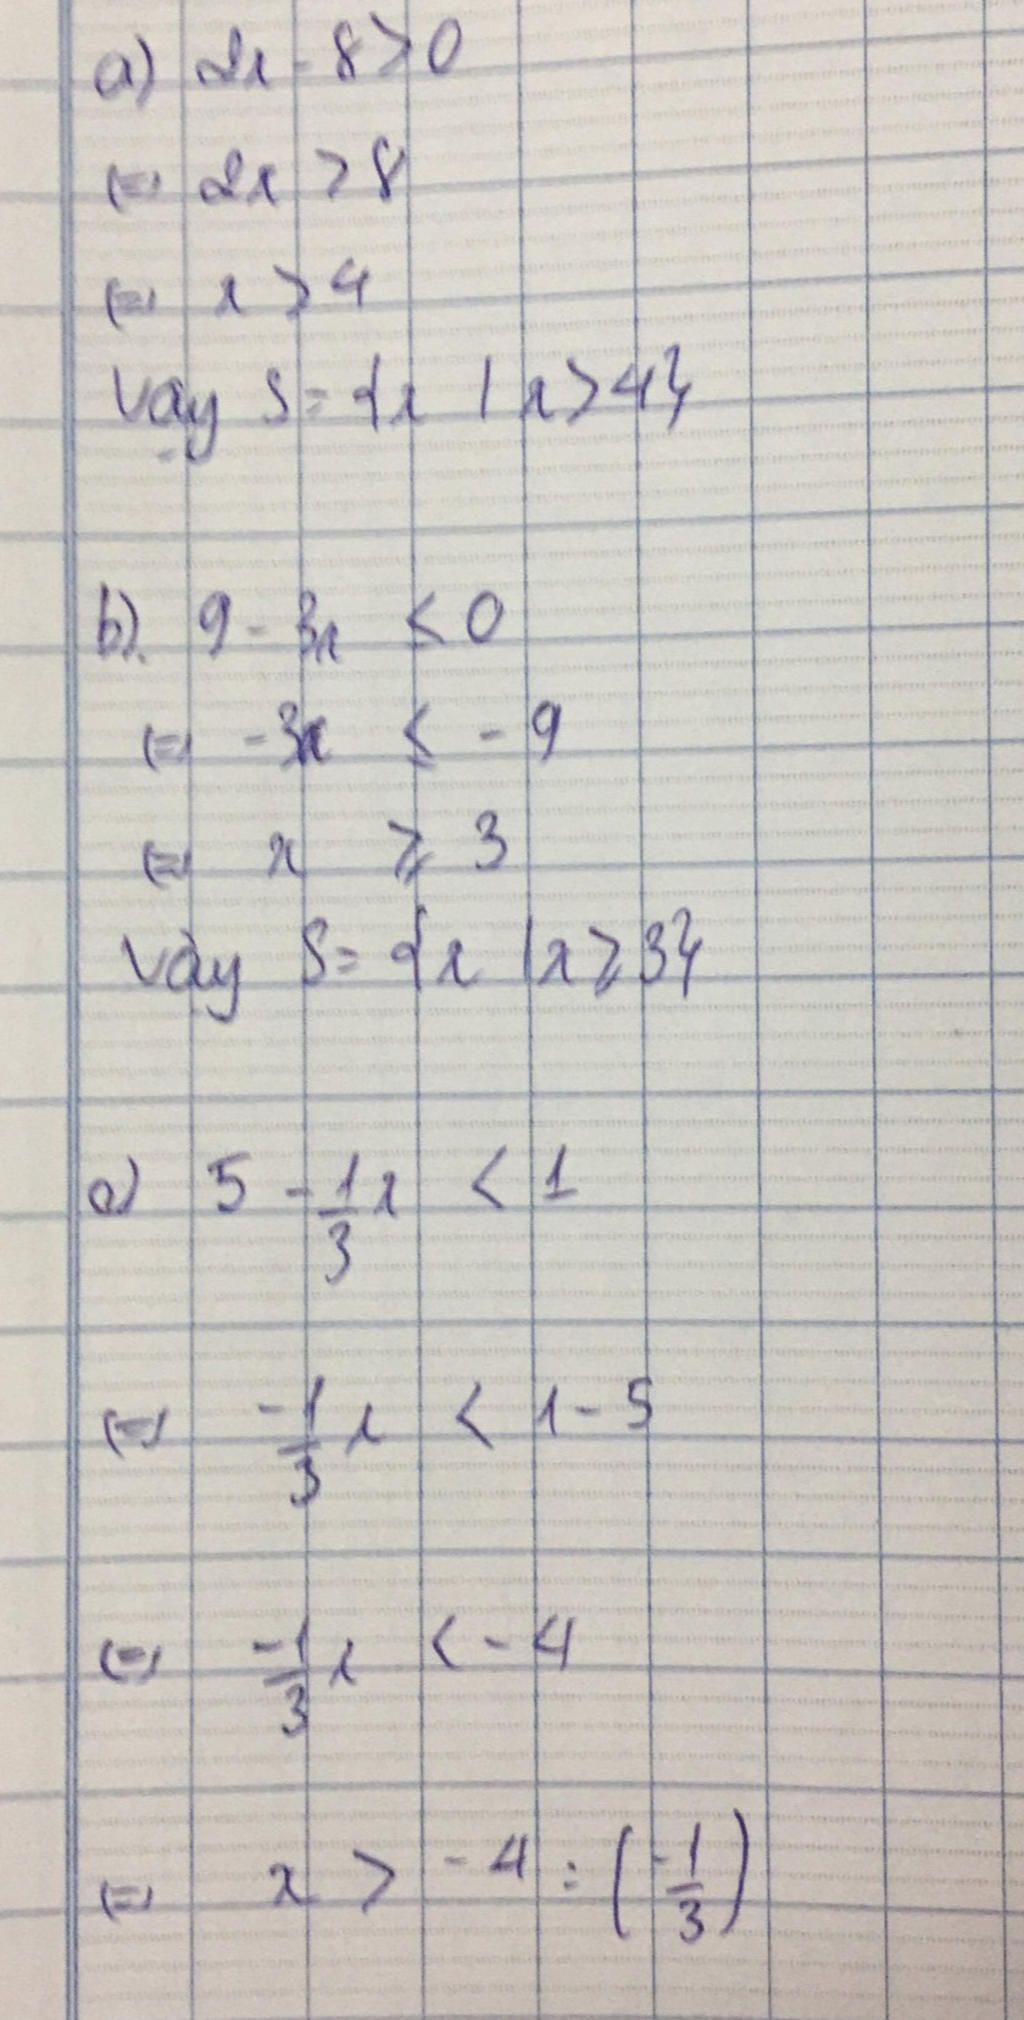 a) 2x - 8 > 0
⇔ 2x > 8
⇔ x > 4
Vậy S = {x | x > 4}
b). 9 - 3x ≤ 0
⇔ -3x ≤ -9
⇔ x ⩾ 3
Vậy S = {x | x ⩾ 3}
c) 5 - 1/3 x < 1
⇔ -1/3 x < 1 - 5
⇔ -1/3 x < -4
⇔ x > -4 : (-1/3)